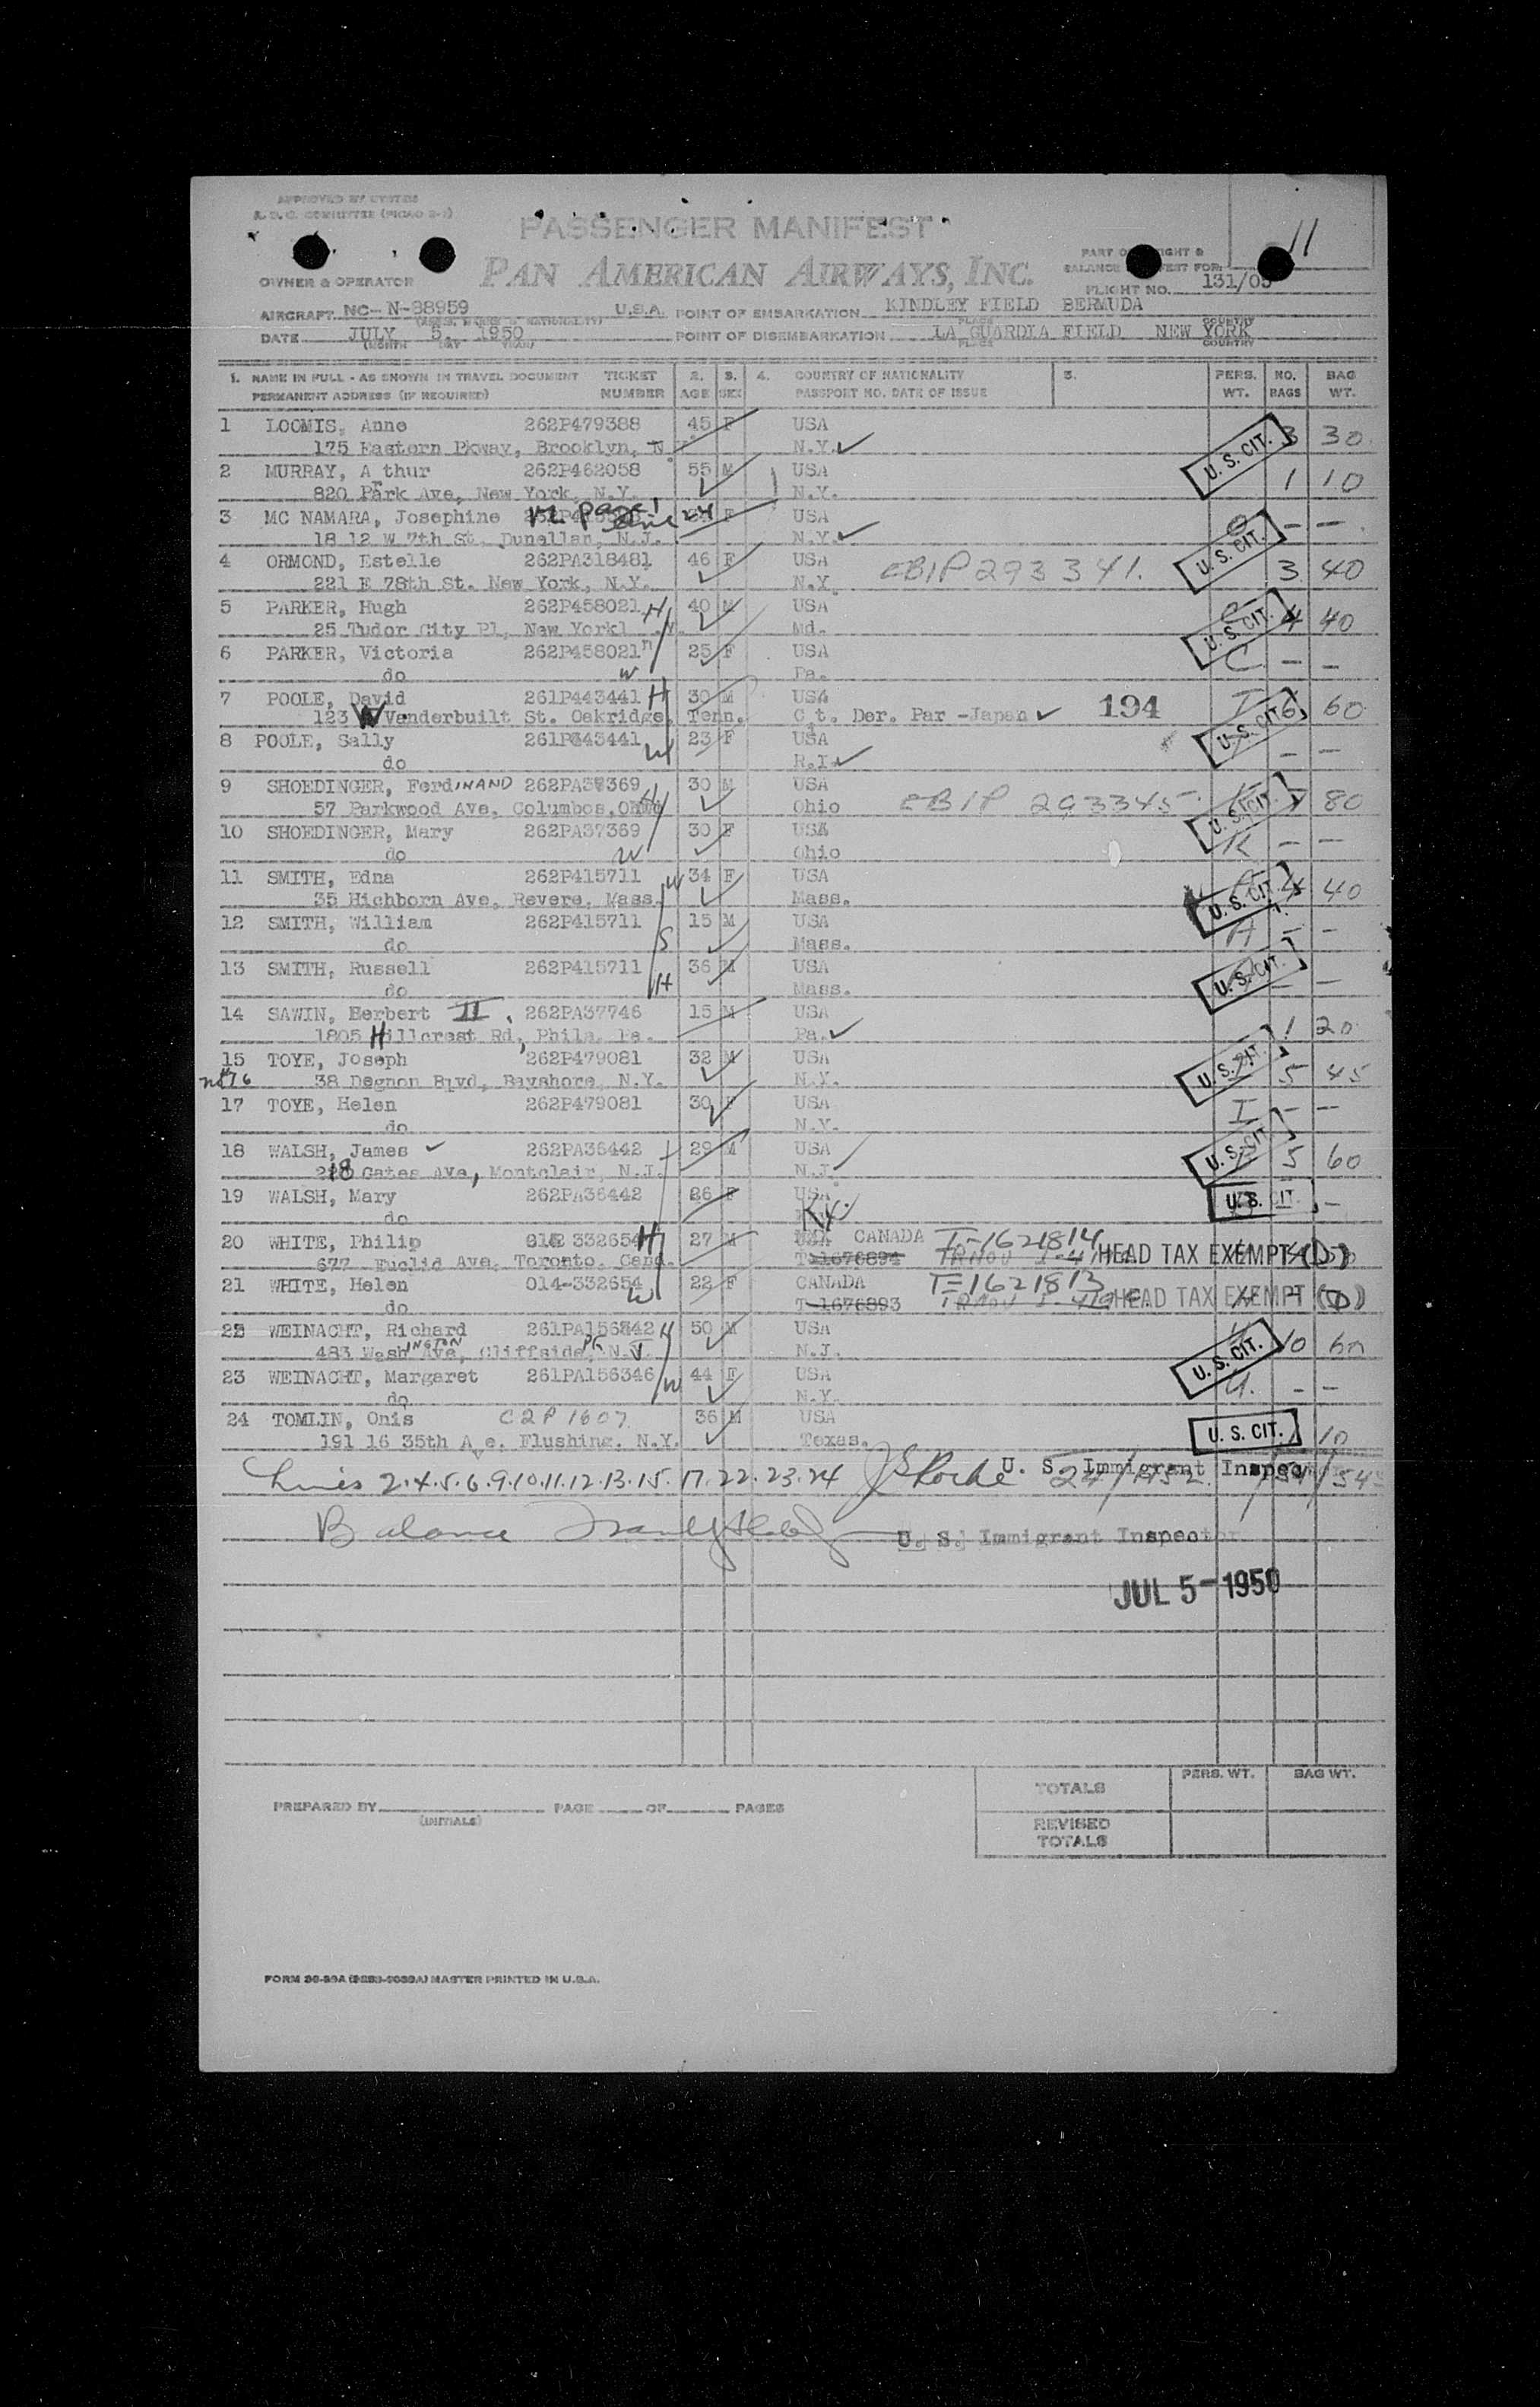 APPROVED BY SYSTEM
11
PASSENGER MANIFEST
OWNER & OPERATOR PAN AMERICAN AIRWAYS, INC.
FLIGHT NO. 131/05
AIRCRAFT NC- N-88959 U.S.A. POINT OF EMBARKATION KINDLEY FIELD BERMUDA
DATE JULY 5, 1950 POINT OF DISEMBARKATION LA GUARDIA FIELD NEW YORK
(MONTH DAY YEAR) PLACE COUNTRY
1. NAME IN FULL - AS SHOWN IN TRAVEL DOCUMENT TICKET 2. 3. 4. COUNTRY OF NATIONALITY 5. PERS. NO. BAG
PERMANENT ADDRESS (IF REQUIRED) NUMBER AGE SEX PASSPORT NO. DATE OF ISSUE WT. BAGS WT.
1 LOOMIS, Anne 262P479388 45 F USA 3 30
175 Eastern Pkway, Brooklyn, N N.Y. U. S. CIT.
2 MURRAY, A thur 262P462058 55 M USA 1 10
820 Park Ave, New York, N.Y. N.Y.
3 MC NAMARA, Josephine F USA — —
18 12 W 7th St. Dunellan, N.J. N.Y. U. S. CIT.
4 ORMOND, Estelle 262PA318481 46 F USA EBIP 293341. 3 40
221 E 78th St. New York, N.Y. N.Y.
5 PARKER, Hugh 262P458021 H 40 M USA 4 40
25 Tudor City Pl, New York Md. U. S. CIT.
6 PARKER, Victoria 262P458021 25 F USA — —
do W Pa.
7 POOLE, David 261P443441 H 30 M USA 194 6 60
123 W Vanderbuilt St. Oakridge, Tenn. C t. Der. Par -Japan
8 POOLE, Sally 261P443441 W 23 F USA U. S. CIT. — —
do R.I.
9 SHOEDINGER, FerdINAND 262PA37369 H 30 M USA 80
57 Parkwood Ave, Columbos, Ohio EBIP 293345 U. S. CIT.
10 SHOEDINGER, Mary 262PA37369 30 F USA K — —
do W Ohio
11 SMITH, Edna 262P415711 W 34 F USA 4 40
35 Hichborn Ave, Revere, Mass. Mass. U. S. CIT.
12 SMITH, William 262P415711 15 M USA A — —
do S Mass.
13 SMITH, Russell 262P415711 36 M USA U. S. CIT. — —
do H Mass.
14 SAWIN, Herbert II, 262PA37746 15 M USA 1 20
1805 Hillcrest Rd, Phila, Pa. Pa.
15 TOYE, Joseph 262P479081 32 M USA U. S. CIT. 5 45
no 16 38 Degnon Blvd, Bayshore, N.Y. N.Y.
17 TOYE, Helen 262P479081 30 F USA I — —
do N.Y.
18 WALSH, James 262PA36442 29 M USA U. S. CIT. 5 60
218 Gates Ave, Montclair, N.J. N.J.
19 WALSH, Mary 262PA36442 26 F USA U. S. CIT. —
do Ky.
20 WHITE, Philip 332654 H 27 M CANADA T-1621814
677 Euclid Ave, Toronto, Cand. T-1676894 HEAD TAX EXEMPT (D)
21 WHITE, Helen 014-332654 W 22 F CANADA T-1621813
do T-1676893 HEAD TAX EXEMPT (D)
22 WEINACHT, Richard 261PA156342 H 50 M USA 10 60
483 WashINGTON Ave, Cliffside PK, N.J. N.J. U. S. CIT.
23 WEINACHT, Margaret 261PA156346 W 44 F USA — —
do N.Y.
24 TOMLIN, Onis C2P1607 36 M USA U. S. CIT. 10
191 16 35th Ave. Flushing, N.Y. Texas.
Lines 2.4.5.6.9.10.11.12.13.15.17.22.23.24 JS Roche U. S. Immigrant Inspec
Balance U. S. Immigrant Inspector
JUL 5-1950
TOTALS PERS. WT. BAG WT.
PREPARED BY PAGE OF PAGES
(INITIALS)
REVISED
TOTALS
MASTER PRINTED IN U.S.A.